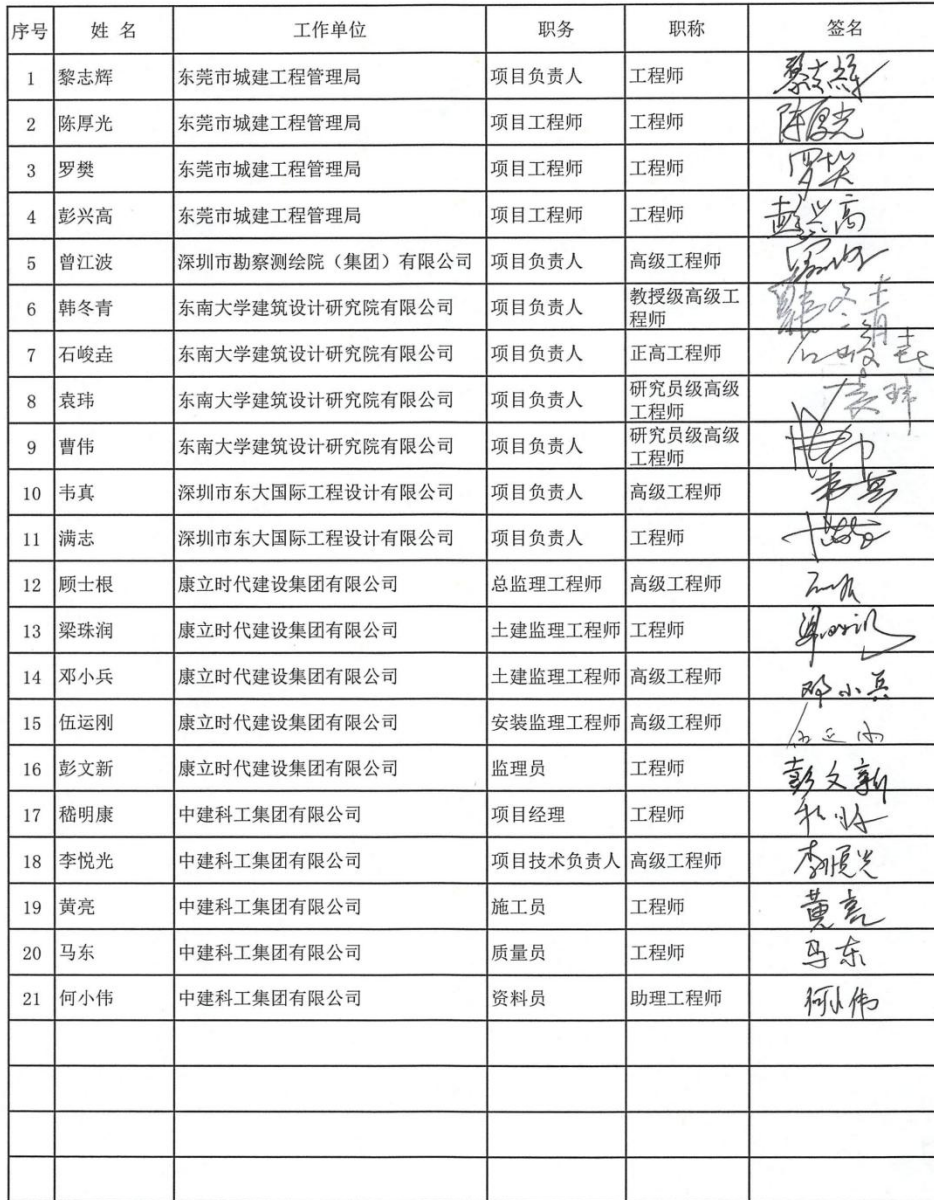 序号 姓 名 工作单位 职务 职称 签名
1 黎志辉 东莞市城建工程管理局 项目负责人 工程师 黎志辉
2 陈厚光 东莞市城建工程管理局 项目工程师 工程师 陈厚光
3 罗樊 东莞市城建工程管理局 项目工程师 工程师 罗樊
4 彭兴高 东莞市城建工程管理局 项目工程师 工程师 彭兴高
5 曾江波 深圳市勘察测绘院（集团）有限公司 项目负责人 高级工程师
6 韩冬青 东南大学建筑设计研究院有限公司 项目负责人 教授级高级工
程师 韩冬青
7 石峻垚 东南大学建筑设计研究院有限公司 项目负责人 正高工程师 石峻垚
8 袁玮 东南大学建筑设计研究院有限公司 项目负责人 研究员级高级
工程师 袁玮
9 曹伟 东南大学建筑设计研究院有限公司 项目负责人 研究员级高级
工程师
10 韦真 深圳市东大国际工程设计有限公司 项目负责人 高级工程师 韦真
11 满志 深圳市东大国际工程设计有限公司 项目负责人 工程师
12 顾士根 康立时代建设集团有限公司 总监理工程师 高级工程师
13 梁珠润 康立时代建设集团有限公司 土建监理工程师 工程师
14 邓小兵 康立时代建设集团有限公司 土建监理工程师 高级工程师 邓小兵
15 伍运刚 康立时代建设集团有限公司 安装监理工程师 高级工程师 伍运刚
16 彭文新 康立时代建设集团有限公司 监理员 工程师 彭文新
17 嵇明康 中建科工集团有限公司 项目经理 工程师
18 李悦光 中建科工集团有限公司 项目技术负责人 高级工程师 李悦光
19 黄亮 中建科工集团有限公司 施工员 工程师 黄亮
20 马东 中建科工集团有限公司 质量员 工程师 马东
21 何小伟 中建科工集团有限公司 资料员 助理工程师 何小伟